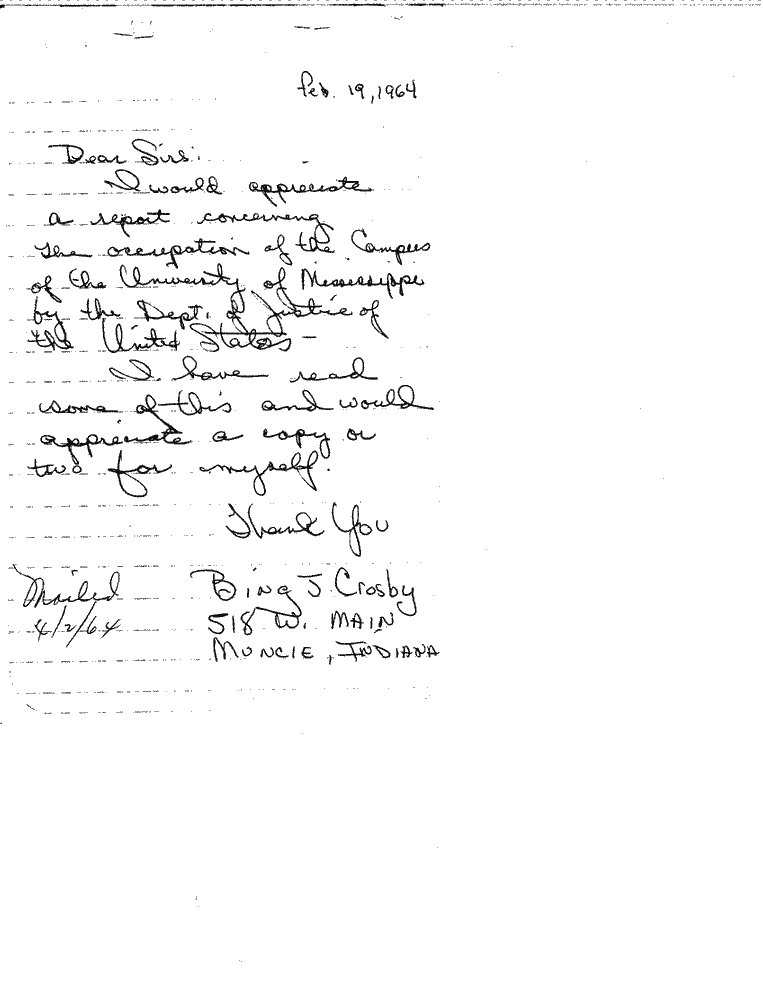 Feb. 19, 1964
Dear Sirs:
I would appreciate
a report concerning
the occupation of the Campus
of the University of Mississippi
by the Dept. of Justice of
the United States –
I have read
some of this and would
appreciate a copy or
two for myself.
Thank You
Bing J Crosby
518 W. MAIN
MUNCIE, INDIANA
Mailed
4/2/64